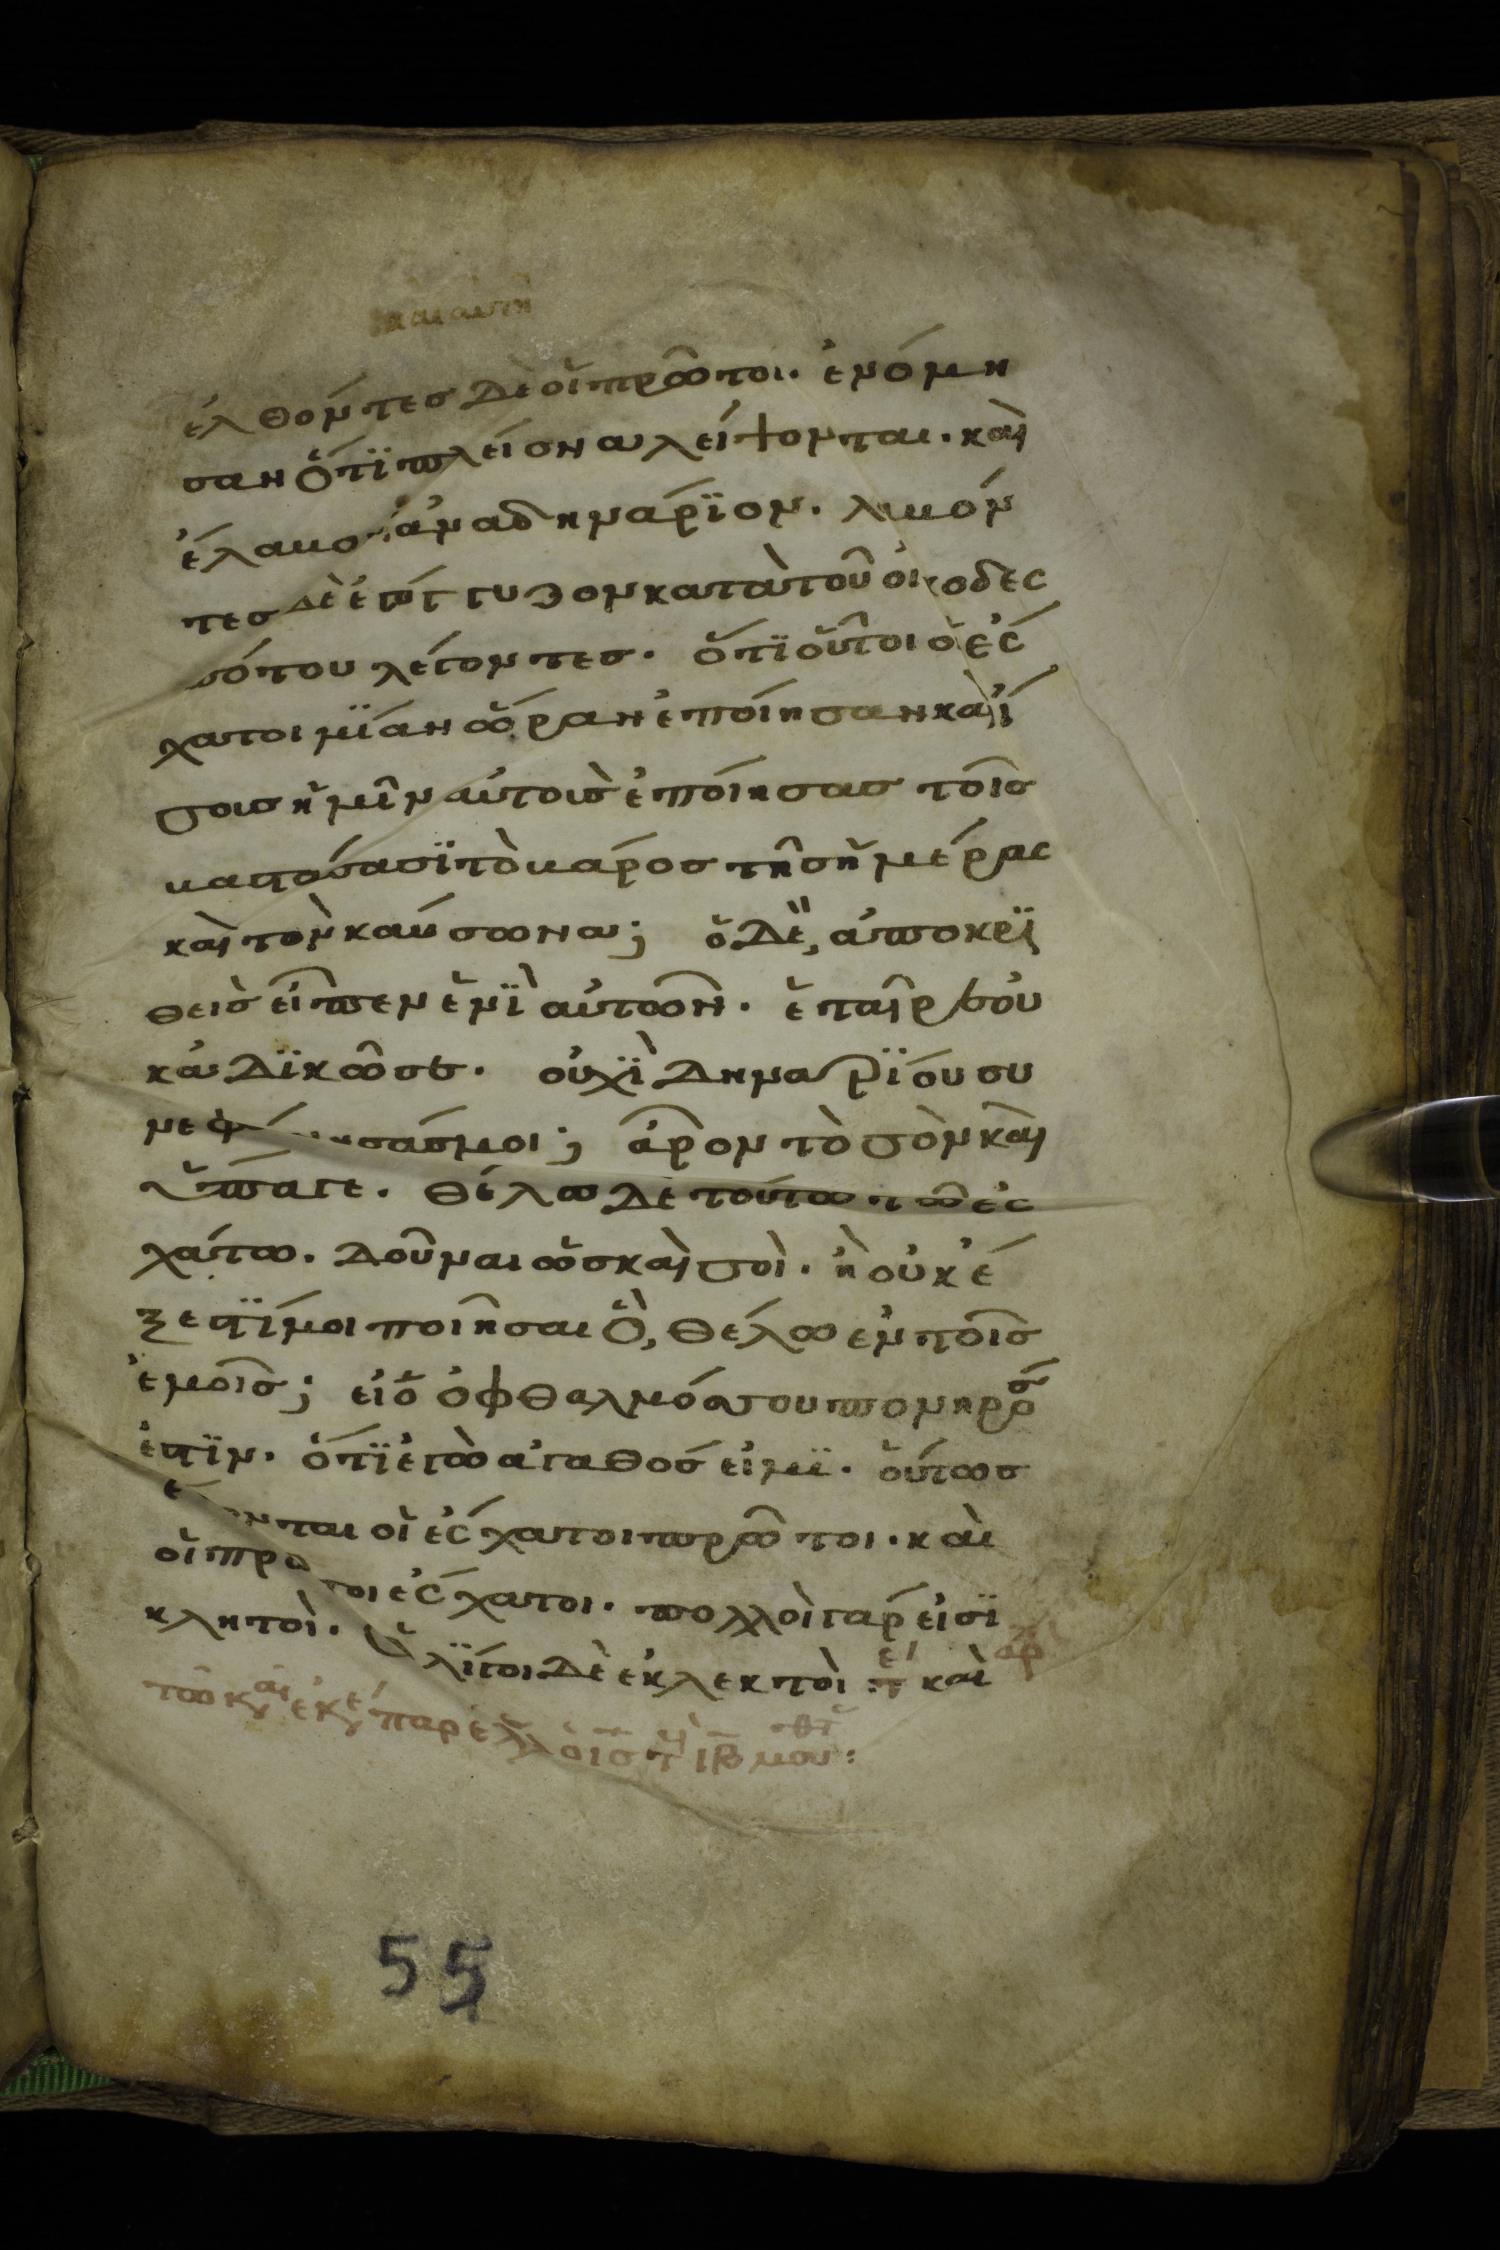 ἐλθόντες δὲ οἱ πρῶτοι. ἐνόμη
σαν ὅτϊ πλείονα λείψονται. καὶ
ἔλαβον ἀνα δηνάρϊον. λαβόν
τες δὲ ἐγόγγυζον κατὰ τοῦ οἰκοδεσ
πότου λέγοντες. ὅτϊ οὗτοι οἱ ἔσ
χατοι μΐαν ὥραν ἐποίησαν καὶ ἴ
σους ἡμῖν αὐτοὺς ἐποίησας τοῖς
βαστάσασϊ τὸ βάρος τῆς ἡμέρας
καὶ τὸν καύσωνα; ὁ δὲ, ἀποκρϊ
θεὶς εἶπεν ἑνῒ αὐτῶν. ἑταῖρε οὐ
κἀδϊκῶ σε. οὐχῒ δηναρΐου συ
νεφώνησάς μοι; ἆρον τὸ σὸν καὶ
ὕπαγε. θέλω δὲ τούτω τῶ ἐσ
χάτω. δοῦναι ὡς καὶ σοὶ. ἢ οὐκ ἔ
ξεστΐ μοι ποιῆσαι ὃ, θέλω ἐν τοῖς
ἐμοῖς; εἰ ὁ ὀφθαλμός σου πονηρός
ἐστϊν. ὅτϊ ἐγὼ ἀγαθός εἰμϊ. οὕτως
ἔσονται οἱ ἔσχατοι πρῶτοι. καὶ
οἱ πρῶτοι ἔσχατοι. πολλοὶ γάρ εἰσϊ
κλητοὶ. ὀλΐγοι δὲ ἐκλεκτοὶ καὶ
55